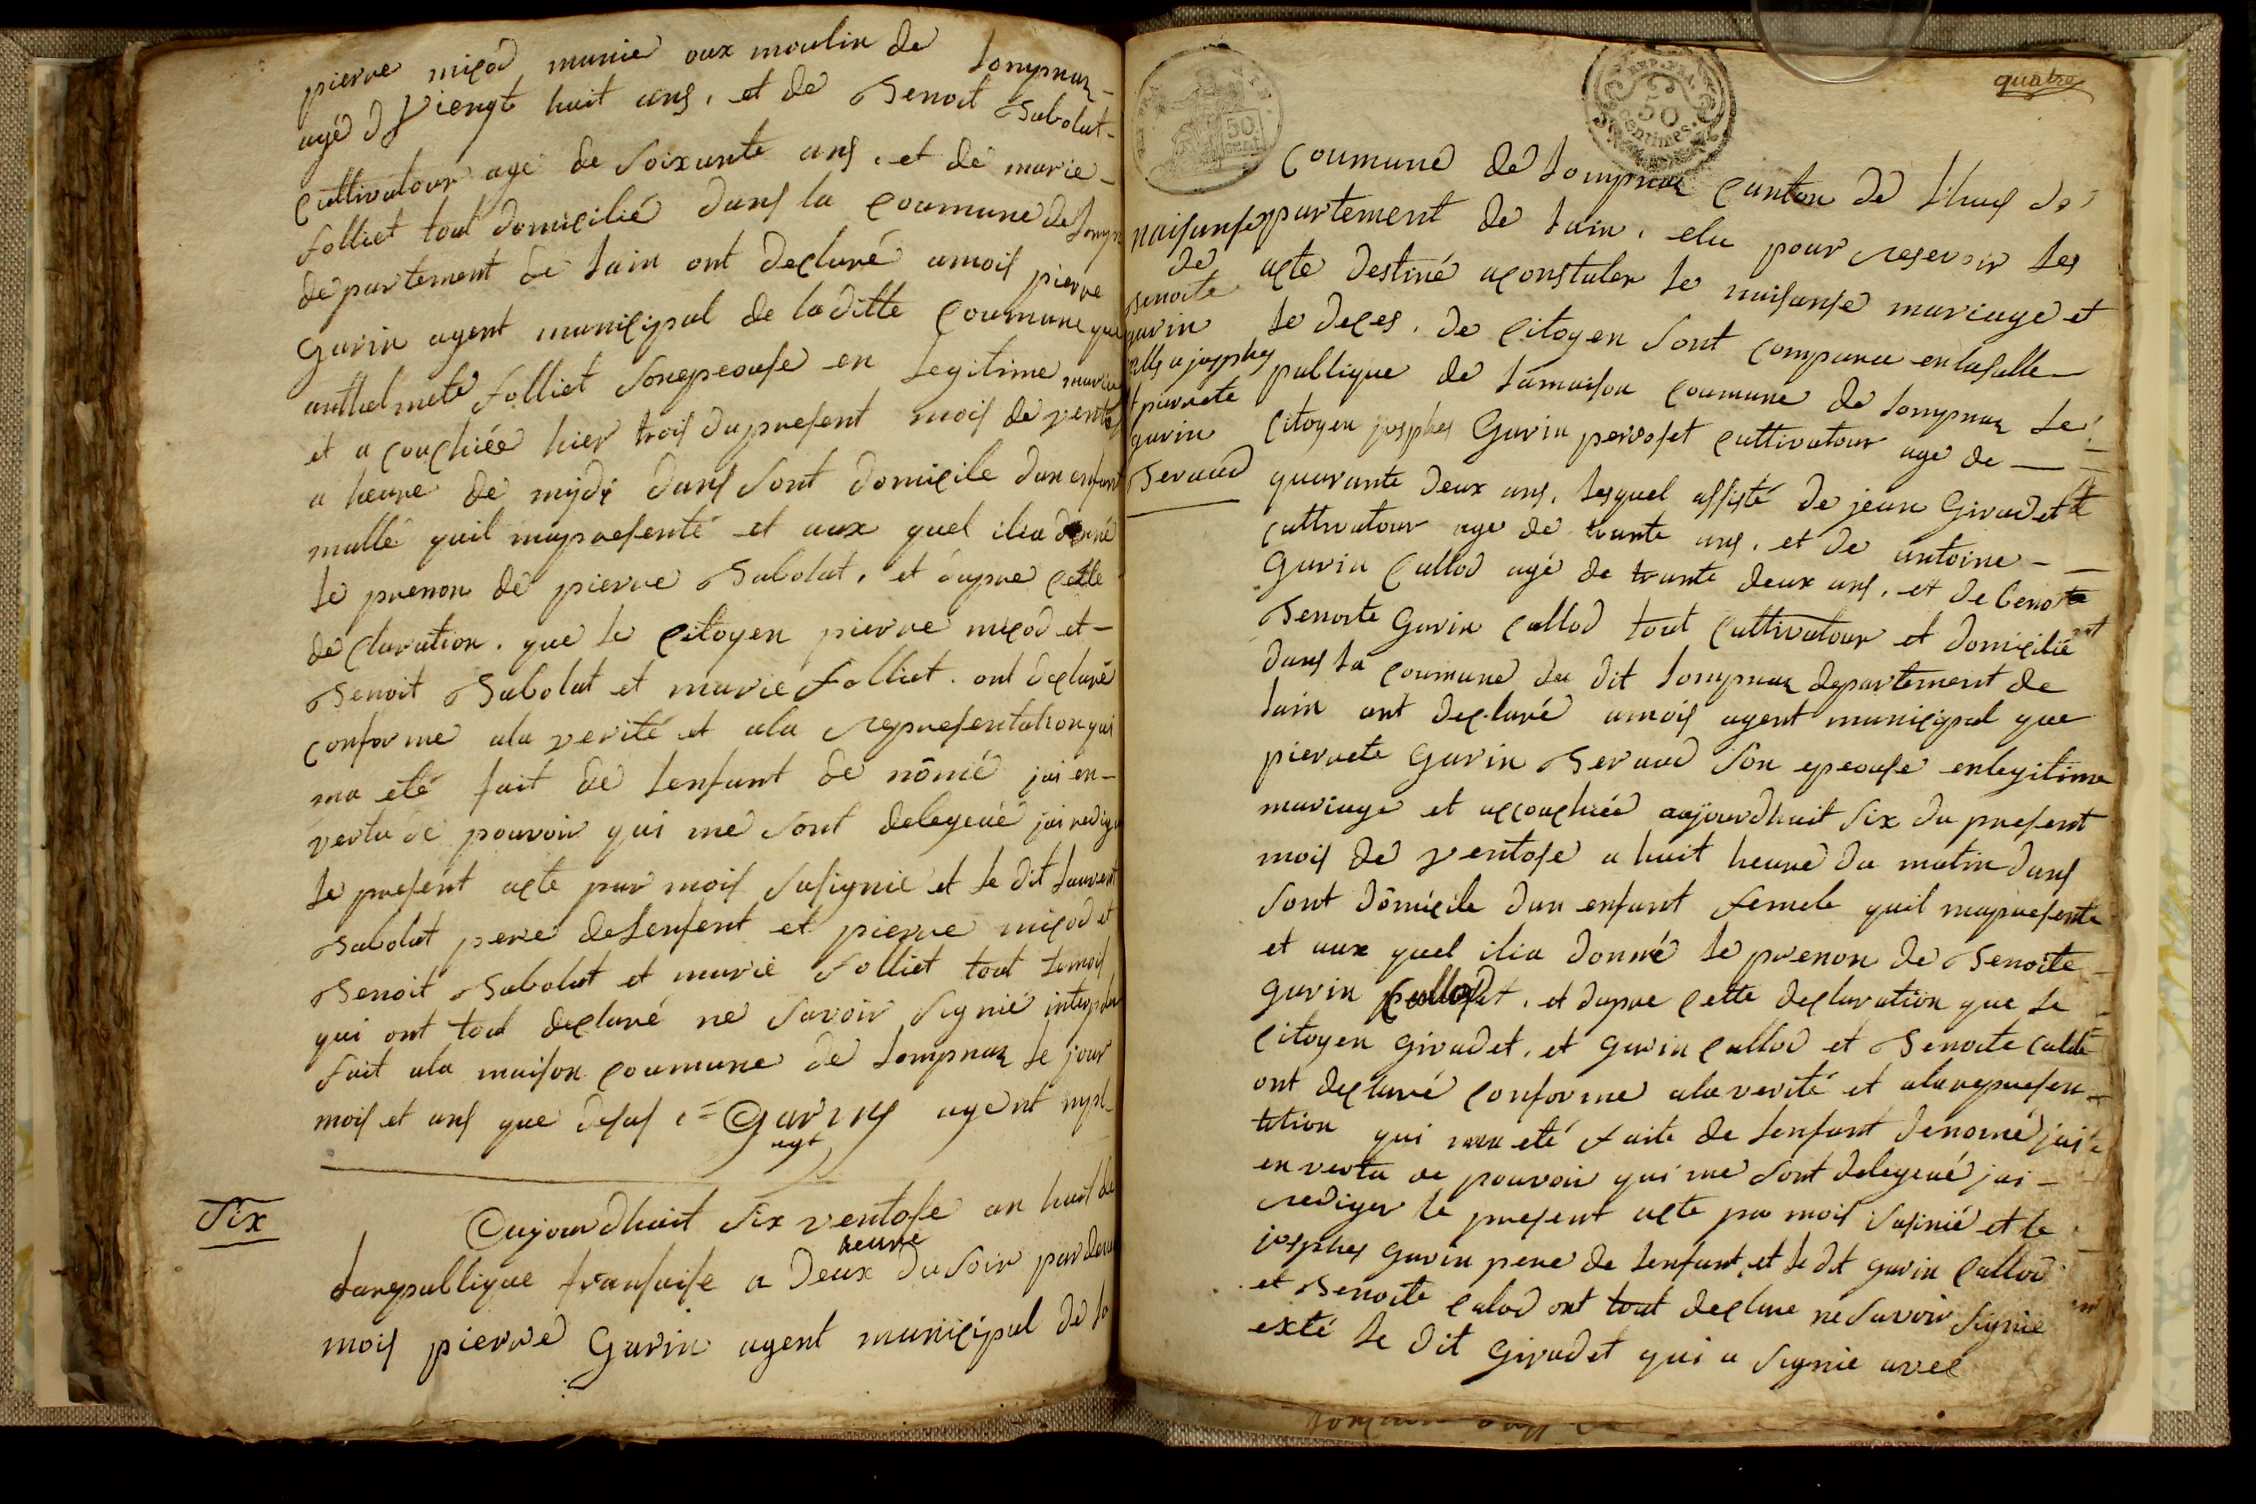 pierre miçod munie aux moulin de Lompnaz
agé d Viengt huit ans, et de Benoit Babolat
Cultivatour age de Soixante ans, et de marie
folliet tout domicilié dans la Coumune de Lomp
departement de Lain ont declaré amois pierre
Garin agent municipal de laditte Coumune que
anthelmete folliet Sonepeouse en Legitime maria
et a couchiée hier trois dupresent mois de vento
a heure de mydi dans Sont domicile dun enfant
malle quil mapresenté et aux quel ilia donné
Le prenon de pierre Babolat, et daprre cette
declaration, que le Citoyen pierre miçod et
Benoit Babolat et marie folliet. ont declaré
conforme ala verité et ala representation qui
ma eté fait de Lenfant de nômé jai en
vertu de pouvoir qui me Sont delegeué jai redige
Le present acte par mois Susignie et Le dit Laurent
Babolat pere deLenfent et pierre miçod et
Benoit Babolat et marie folliet tout temois
qui ont tout declaré ne Savoir Signié
fait ala maison coumune de Lompnaz Le jour
mois et ans que desus Garin agent mpl
agt
Six
Aujourdhuit Six ventose an huit de
heure
Larepublique fransaise a Deux du Soir par deva
mois pierre Garin agent municipal de la
quatre
REP. FRA.
50
centimes.
50
cent.
Coumune de Lompnaz Canton de Lhuis de
partement de Lain. elu pour reservoir Les
acte destiné aconstater Le naisanse mariage et
Le deces. de Citoyen Sont comparu enlasalle
publique de Lamaison Coumune de Lompnaz Le
Citoyen josphes Garin perroset Cultivatour age de
quarante deux ans, Lesquel assisté de jean Giradet
Cultivatour age de trante ans, et de antoine
Garin Callod agé de trante deux ans, et de benoite
Benoite Garin Callod tout Cultivatour et domicilié
dans La Coumune du dit Lompnaz departement de
Lain ont declaré amois agent municipal que
pierrete Garin Beraud Son epeouse enlegitime
mariage et accouchiée aujourdhuit Six du present
mois de ventose a huit heure du matin dans
Sont dômicile dun enfant femele quil mapresente
et aux quel ilia donné Le prenon de Benoite
Garin, et dapre cette declaration que Le
Citoyen Giradet, et Garin Callod et Benoite Callod
ont declaré conforme ala verité et alarepresen
tation qui ma eté faite de Lenfant denomé jai
en vertu de pouvoir qui me Sont delegeué jai
rediger le present acte par mois Susinié et le
josphes Garin pere de Lenfant, et Le dit Garin Callod
et Benoite Calod ont tout declare ne Savoir Signie
exté Le dit Giradet qui a Signie avec
naisanse
de
Benoite
Garin
fille a josphes
et pierrete
Garin
Beraud